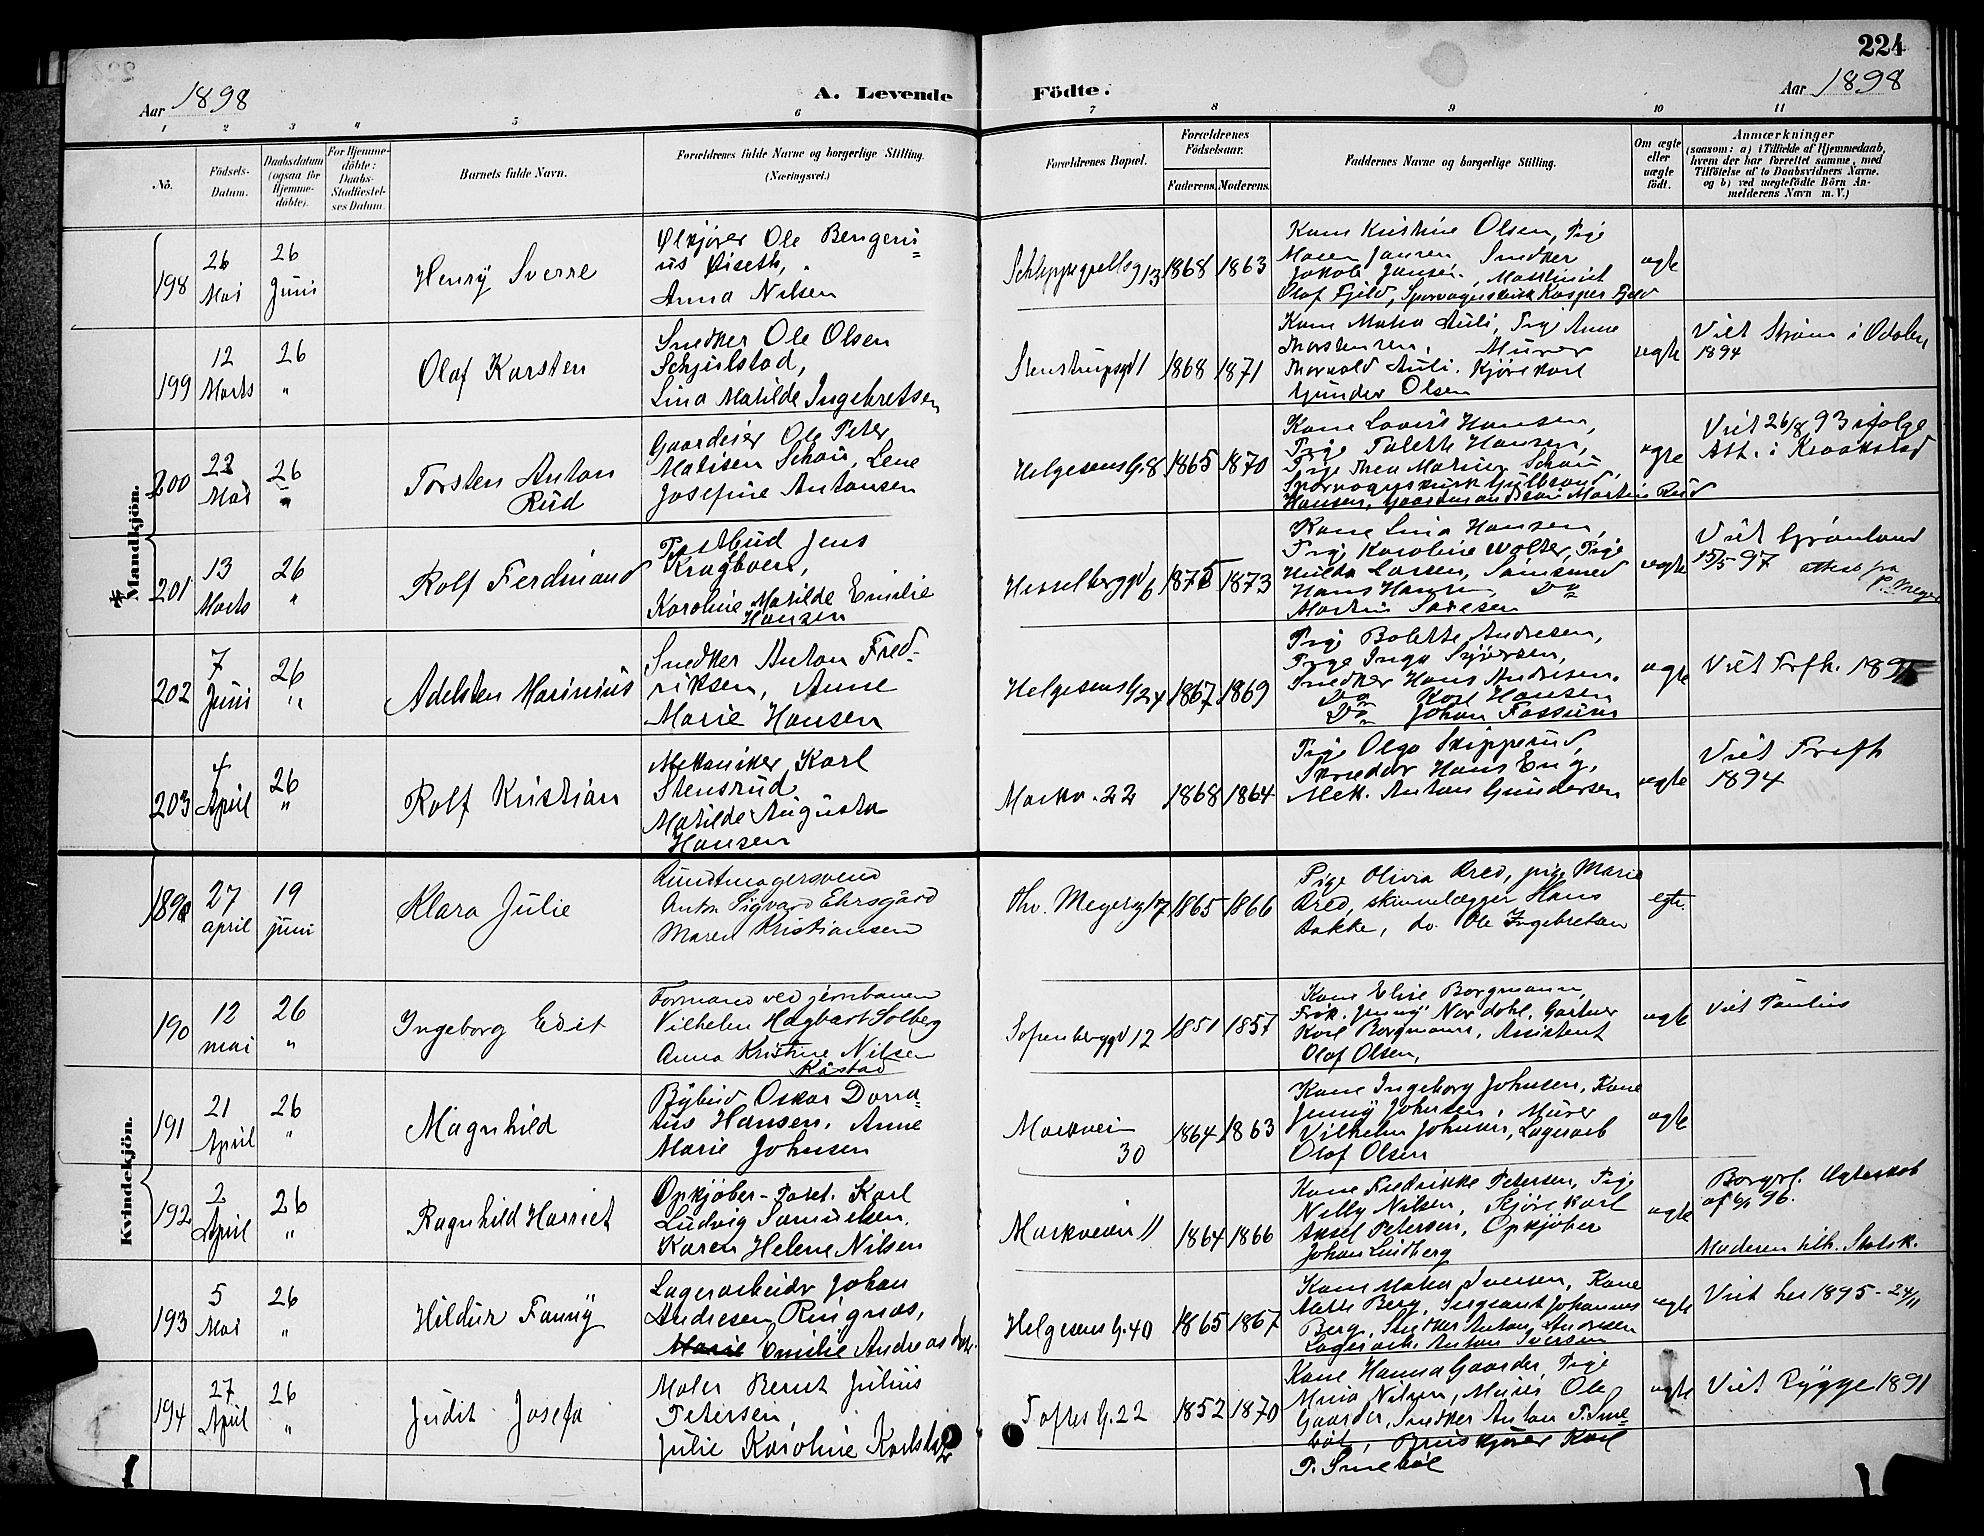 224
Aar 1898
A. Levende
Födte.
Aar 1898
1
2
3
4
5
6
7
8
9
10
11
No.
Födsels-
Datum.
Daabsdatum
(ogsaa for
Hjemme-
döbte).
For Hjemme-
döbte:
Daabs-
Stadfæstel-
ses Datum.
Barnets fulde Navn.
Forældrenes fulde Navne og borgerlige Stilling.
(Næringsvei.)
Forældrenes Bopæl.
Forældrenes
Födselsaar.
Faderens.
Moderens.
Faddernes Navne og borgerlige Stilling.
Om ægte
eller
uægte
födt.
Anmærkninger
(saasom: a) i Tilfælde af Hjemmedaab,
hvem der har forrettet samme, med
Tilföielse af to Daabsvidners Navne.
og b) ved uægtefödte Börn An-
melderens Navn m. V.)
Mandkjön.
198
26
Mai
26
Juni
Henry Sverre
Ølkjører Ole
Anna Nilsen
13
1868
1863
Kone Kristine Olsen, Pige
Maren Jansen Snedker
Jakob Jansen, Maskinist
Olaf Fjeld, Kasper Fjeld
ægte
199
12
Marts
26
"
Olaf Karsten
Snedker Ole Olsen
Schjulstad,
Lina Matilde Ingebretsen
Stenstrupsgd 1
1868
1871
Kone Auli, Pige Anne
Thorstensen, Murer
Thorvald Auli. Kjørekarl
Gunder Olsen
ægte
Viet Strøm i Odalen
1894
200
22
Mai
26
"
Torsten Anton
Rud
Gaardeier Ole Peter
Matisen Schou, Lene
Josefine Antonsen
Helgesens G. 8
1865
1870
Kone Lovise Hansen,
Pige Hansen,
Pige Thea
Hansen, Martin Rud
ægte
Viet 26/8 93 ifølge
Att. i Kraakstad
201
13
Marts
26
"
Rolf Ferdinand
Postbud Jens
Karoline Matilde Emilie
Hansen
Hesselberggd 6
1875
1873
Kone Lina Hansen,
Pige Karoline Wolter, Pige
Hulda Larsen,
Hans Hansen, Do
Martin
ægte
Viet Grønland
15/5-97 attest fra
P. Meyer
202
7
Juni
26
"
Adelsten Marinius
Snedker Anton Fred-
riksen, Anne
Marie Hansen
Helgesens G 24
1867
1869
Pige Bolette Andresen,
Pige Inga
Snedker Hans Andresen.
Do Karl Hansen
Do Johan Fossum
ægte
Viet Trefk.
203
4
April
26
"
Rolf Kristian
Mekaniker Karl
Stensrud
Matilde Augusta
Hansen
Markv. 22
1868
1864
Pige Olga Skipperud,
Skrædder Hans Eng,
Mek. Anton Gundersen
ægte
Viet Trefk
1894
Kvindekjön.
189
27
april
19
juni
Klara Julie
Buntmagersvend
Anton Sigvard
Maren Kristiansen
Thv. Meyersg 17
1865
1866
Pige Olivia Bred, pige Marie
Bred, skinnelægger Hans
Bakke, do. Ole Ingebretsen
egte.
190
12
mai
26
"
Ingeborg Edit
Formand ved jernbanen
Vilhelm Hagbart Solberg
Anna Kristine Nilsen
Kåstad
Sofienberggd 12
1851
1857
Kone Elise Borgmann,
Frøk. Jenny Nordahl, Gartner
Karl Borgmann, Assistent
Olaf Olsen,
ægte
Viet Paulus
191
21
April
26
"
Magnhild
Bybud Oskar Dona-
tus Hansen, Anne
Marie Johnsen
Markvein
30
1864
1863
Kone Ingeborg Johnsen, Kone
Jenny Johnsen, Murer
Vilhelm Johnsen, Lagerarb
Olaf Olsen
ægte
192
2
April
26
"
Ragnhild Harriet
Opkjøber Karl
Ludvig Samuelsen,
Karen Helene Nilsen
Markveien 11
1864
1866
Kone Fredrikke Petersen, Pige
Nelly Nilsen, Kjørekarl
Aksel Petersen, Opkjøber
Johan Lindberg
ægte
Borgerl. Ægteskab
Moderen tilh. Statsk.
193
5
Mai
26
"
Hildur Fanny
Lagerarbeider Johan
Andresen Ringnæs,
Emilie
Helgesens G. 40
1865
1867
Kone Iversen, Kone
Berg, Sergeant Johannes
Berg, Snedker Anton Andresen
Lagerarb. Anton Iversen
ægte
Viet her 1895 - 24/11
194
27
April
26
"
Judit Josefa
Maler Bernt Julius
Petersen,
Julie Karoline
Toftes G. 22
1852
1870
Kone Hanna Gaarder, Pige
Mina Nilsen, Murer Ole
Gaarder, Snedker Anton P. Sme-
bøl, Karl
P. Smebøl
ægte
Viet Rygge 1891